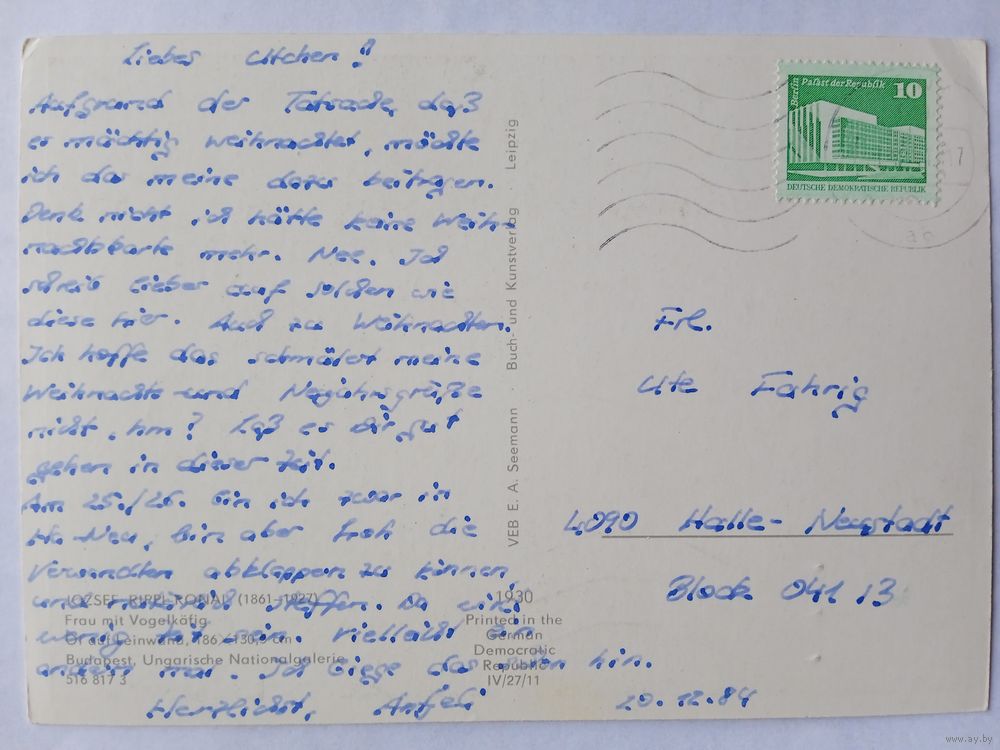 Liebes Utchen!
Aufgrund der Tatsache, daß
es mächtig weihnachtet, möchte
ich das meine dazu beitragen.
Denk nicht ich hätte keine Weih-
nachtskarte mehr. Nee. Ich
schreib lieber auf solchen wie
diese hier. Auch zu Weihnachten.
Ich hoffe das schmälert meine
Weihnachts- und Neujahrsgrüße
nicht, hm? Laß es Dir gut
gehen in dieser Zeit.
Am 25./26. bin ich zwar in
Ha-Neu, bin aber froh die
Verwandten abklappern zu können
und
wenig Zeit sein. Vielleicht ein
andern mal. Ich biege das schon hin.
Herzlichst,
20.12.84
Berlin Palast der Republik
10
DEUTSCHE DEMOKRATISCHE REPUBLIK
Frl.
Ute Fahrig
4090 Halle-Neustadt
Block 041 13
VEB E. A. Seemann · Buch- und Kunstverlag · Leipzig
JOZSEF RIPPL-RONAI (1861–1927)
Frau mit Vogelkäfig
Öl auf Leinwand, 186 × 130,5 cm
Budapest, Ungarische Nationalgalerie
516 817 3
1930
Printed in the
German
Democratic
Republic
IV/27/11
www.ay.by